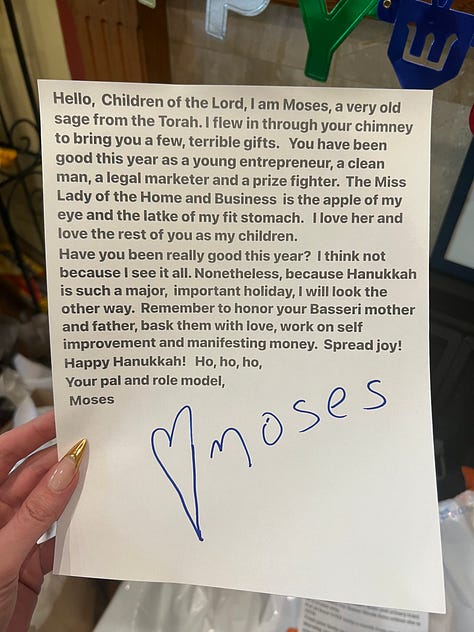 P Y
Hello, Children of the Lord, I am Moses, a very old
sage from the Torah. I flew in through your chimney
to bring you a few, terrible gifts. You have been
good this year as a young entrepreneur, a clean
man, a legal marketer and a prize fighter. The Miss
Lady of the Home and Business is the apple of my
eye and the latke of my fit stomach. I love her and
love the rest of you as my children.
Have you been really good this year? I think not
because I see it all. Nonetheless, because Hanukkah
is such a major, important holiday, I will look the
other way. Remember to honor your Basseri mother
and father, bask them with love, work on self
improvement and manifesting money. Spread joy!
Happy Hanukkah! Ho, ho, ho,
Your pal and role model,
Moses
moses